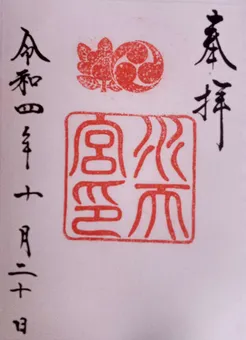 奉拝
水天宮印
令和四年十月二十日